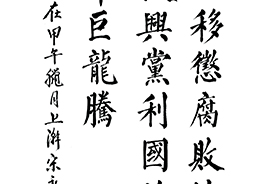 移懲腐敗
興黨利國
巨龍騰
在甲午臘月上澣宋